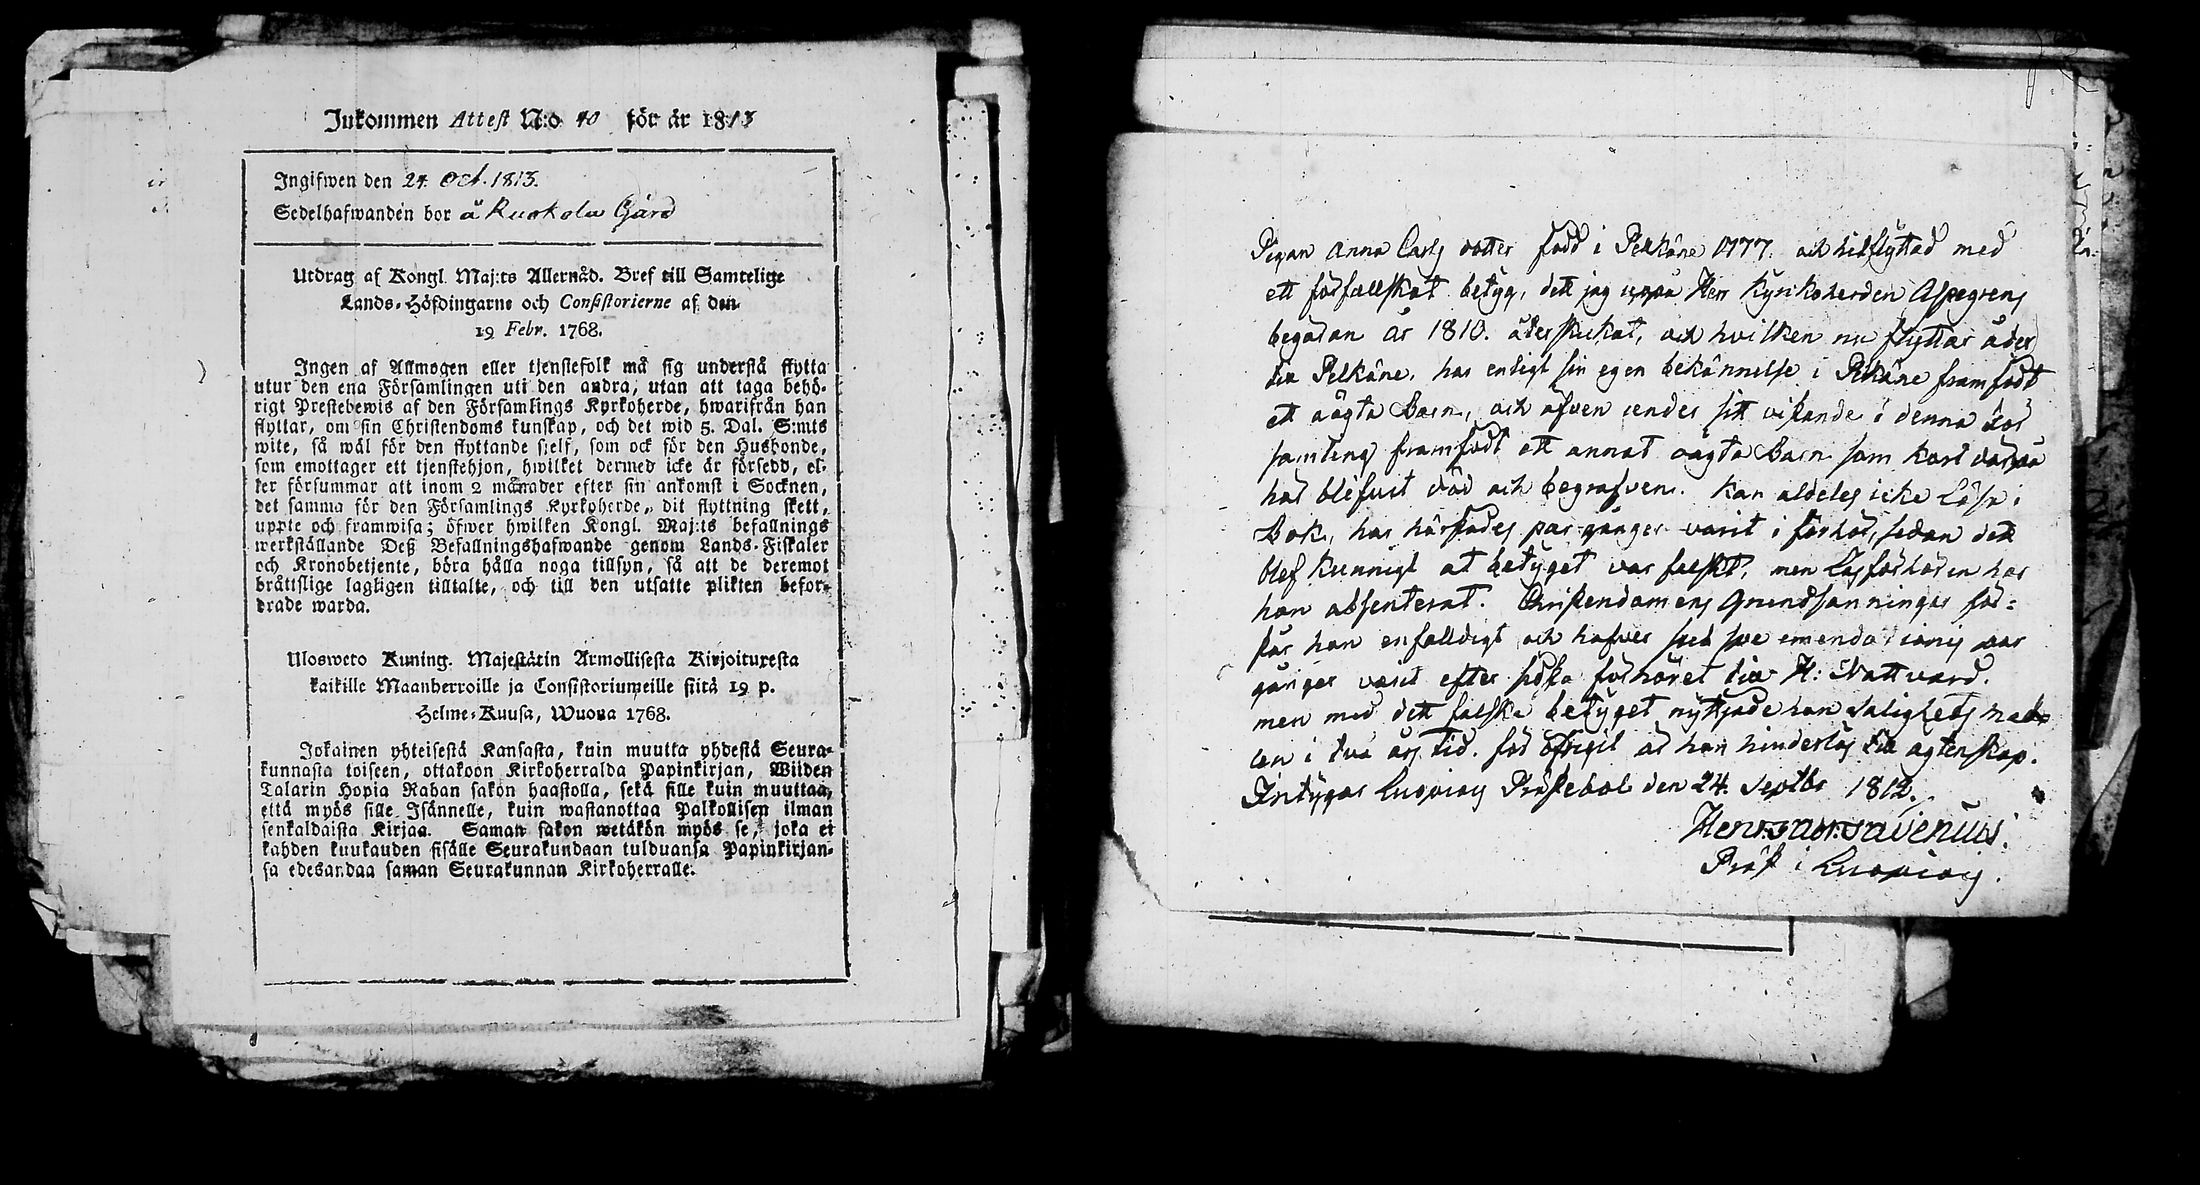 Inkommen Attest N:o 40 för år 1813
Ingifwen den 24. Oct. 1813.
Sedelhafwanden bor å Ruokola Gård
Utdrag af Kongl. Maj:ts Allernåd. Bref till Samtelige
Lands-Höfdingarne och Consistorierne af den
19 Febr. 1768.
Ingen af Allmogen eller tjenstefolk må sig understå flytta
utur den ena Församlingen uti den andra, utan att taga behö-
rigt Prestebewis af den Församlings Kyrkoherde, hwarifrån han
flyttar, om sin Christendoms kunskap, och det wid 5. Dal. S:mts
wite, så wäl för den flyttande sielf, som ock för den Husbonde,
som emottager ett tjenstehjon, hwilket dermed icke är försedd, el-
ler försummar att inom 2 månader efter sin ankomst i Socknen,
det samma för den Församlings Kyrkoherde, dit flyttning skett,
uppte och framwisa; öfwer hwilken Kongl. Maj:ts befallnings
werkställande Deß Befallningshafwande genom Lands-Fiskaler
och Kronobetjente, böra hålla noga tillsyn, så att de deremot
bråttslige lagligen tilltalte, och till den utsatte plikten befor-
drade warda.
Ulosweto Kuning. Majestätin Armollisesta Kirjoituxesta
kaikille Maanherroille ja Consistoriumeille siitä 19 p.
Helme-Kuusa, Wuona 1768.
Jokainen yhteisestä Kansasta, kuin muutta yhdestä Seura-
kunnasta toiseen, ottakoon Kirkoherralda Papinkirjan, Wiiden
Talarin Hopia Rahan sakon haastolla, sekä sille kuin muuttaa,
että myös sille Isännelle, kuin wastanottaa Palkollisen ilman
senkaldaista Kirjaa. Saman sakon wetäkön myös se, joka ei
kahden kuukauden sisälle Seurakundaan tulduansa Papinkirjan-
sa edesandaa saman Seurakunnan Kirkoherralle.
Pigan Anna Carls dotter född i Pelkäne 1777. och hitflyttad med
ett förfallskat betyg, dett jag uppå Herr Kyrkoherden Aspegrens
begäran år 1810. återskickat, och hvilken nu flyttar åter
till Pelkäne, har enligt sin egen bekännelse i Pelkäne framfödt
et oägta Barn, och äfven under sitt vistande i denna För
samling framfödt ett annat oägta Barn som kort derpå
har blifvit död och begrafven. Kan aldeles icke Läsa i
Bok, har härstädes par gånger varit i förhör, sedan dett
blef kunnigt at betyget var falskt, men Läsförhören har
hon absenterat. Christendomens Grundsanningar för-
står hon enfalldigt och hafver sub spe emendationis par
gånger varit efter sökta förhöret till H: Nattvard.
men med dett falska betyget nyttjade hon Salighets med
len i två års tid. för öfrigit är hon hinderlös till ägtenskap.
Intygas Luopiois Prästebol den 24. Septbr 1812.
Präst i Luopiois.